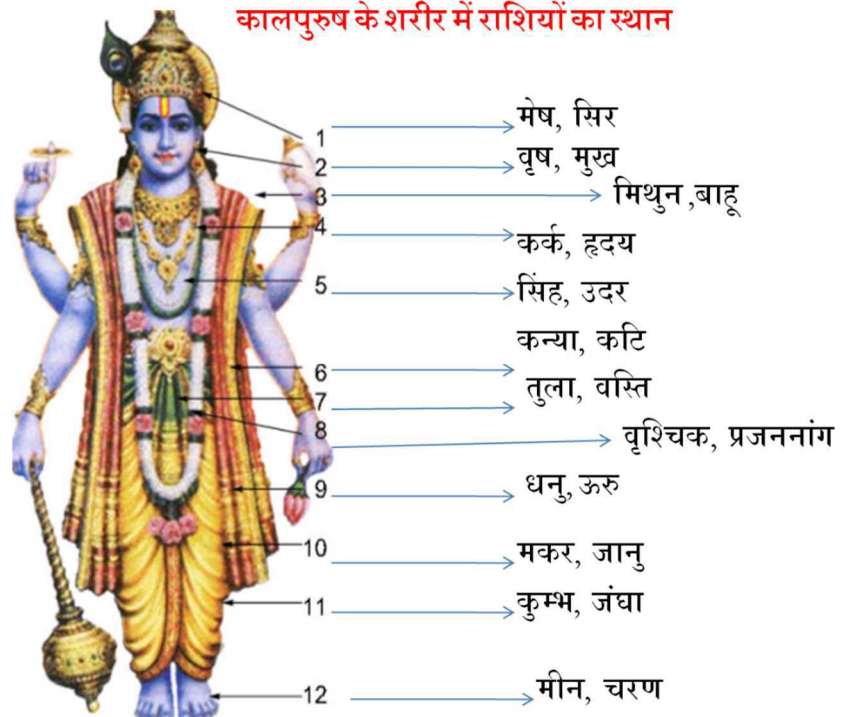 कालपुरुष के शरीर में राशियों का स्थान
1 मेष, सिर
2 वृष, मुख
3 मिथुन ,बाहू
4 कर्क, हृदय
5 सिंह, उदर
6 कन्या, कटि
7 तुला, वस्ति
8 वृश्चिक, प्रजननांग
9 धनु, ऊरु
10 मकर, जानु
11 कुम्भ, जंघा
12 मीन, चरण